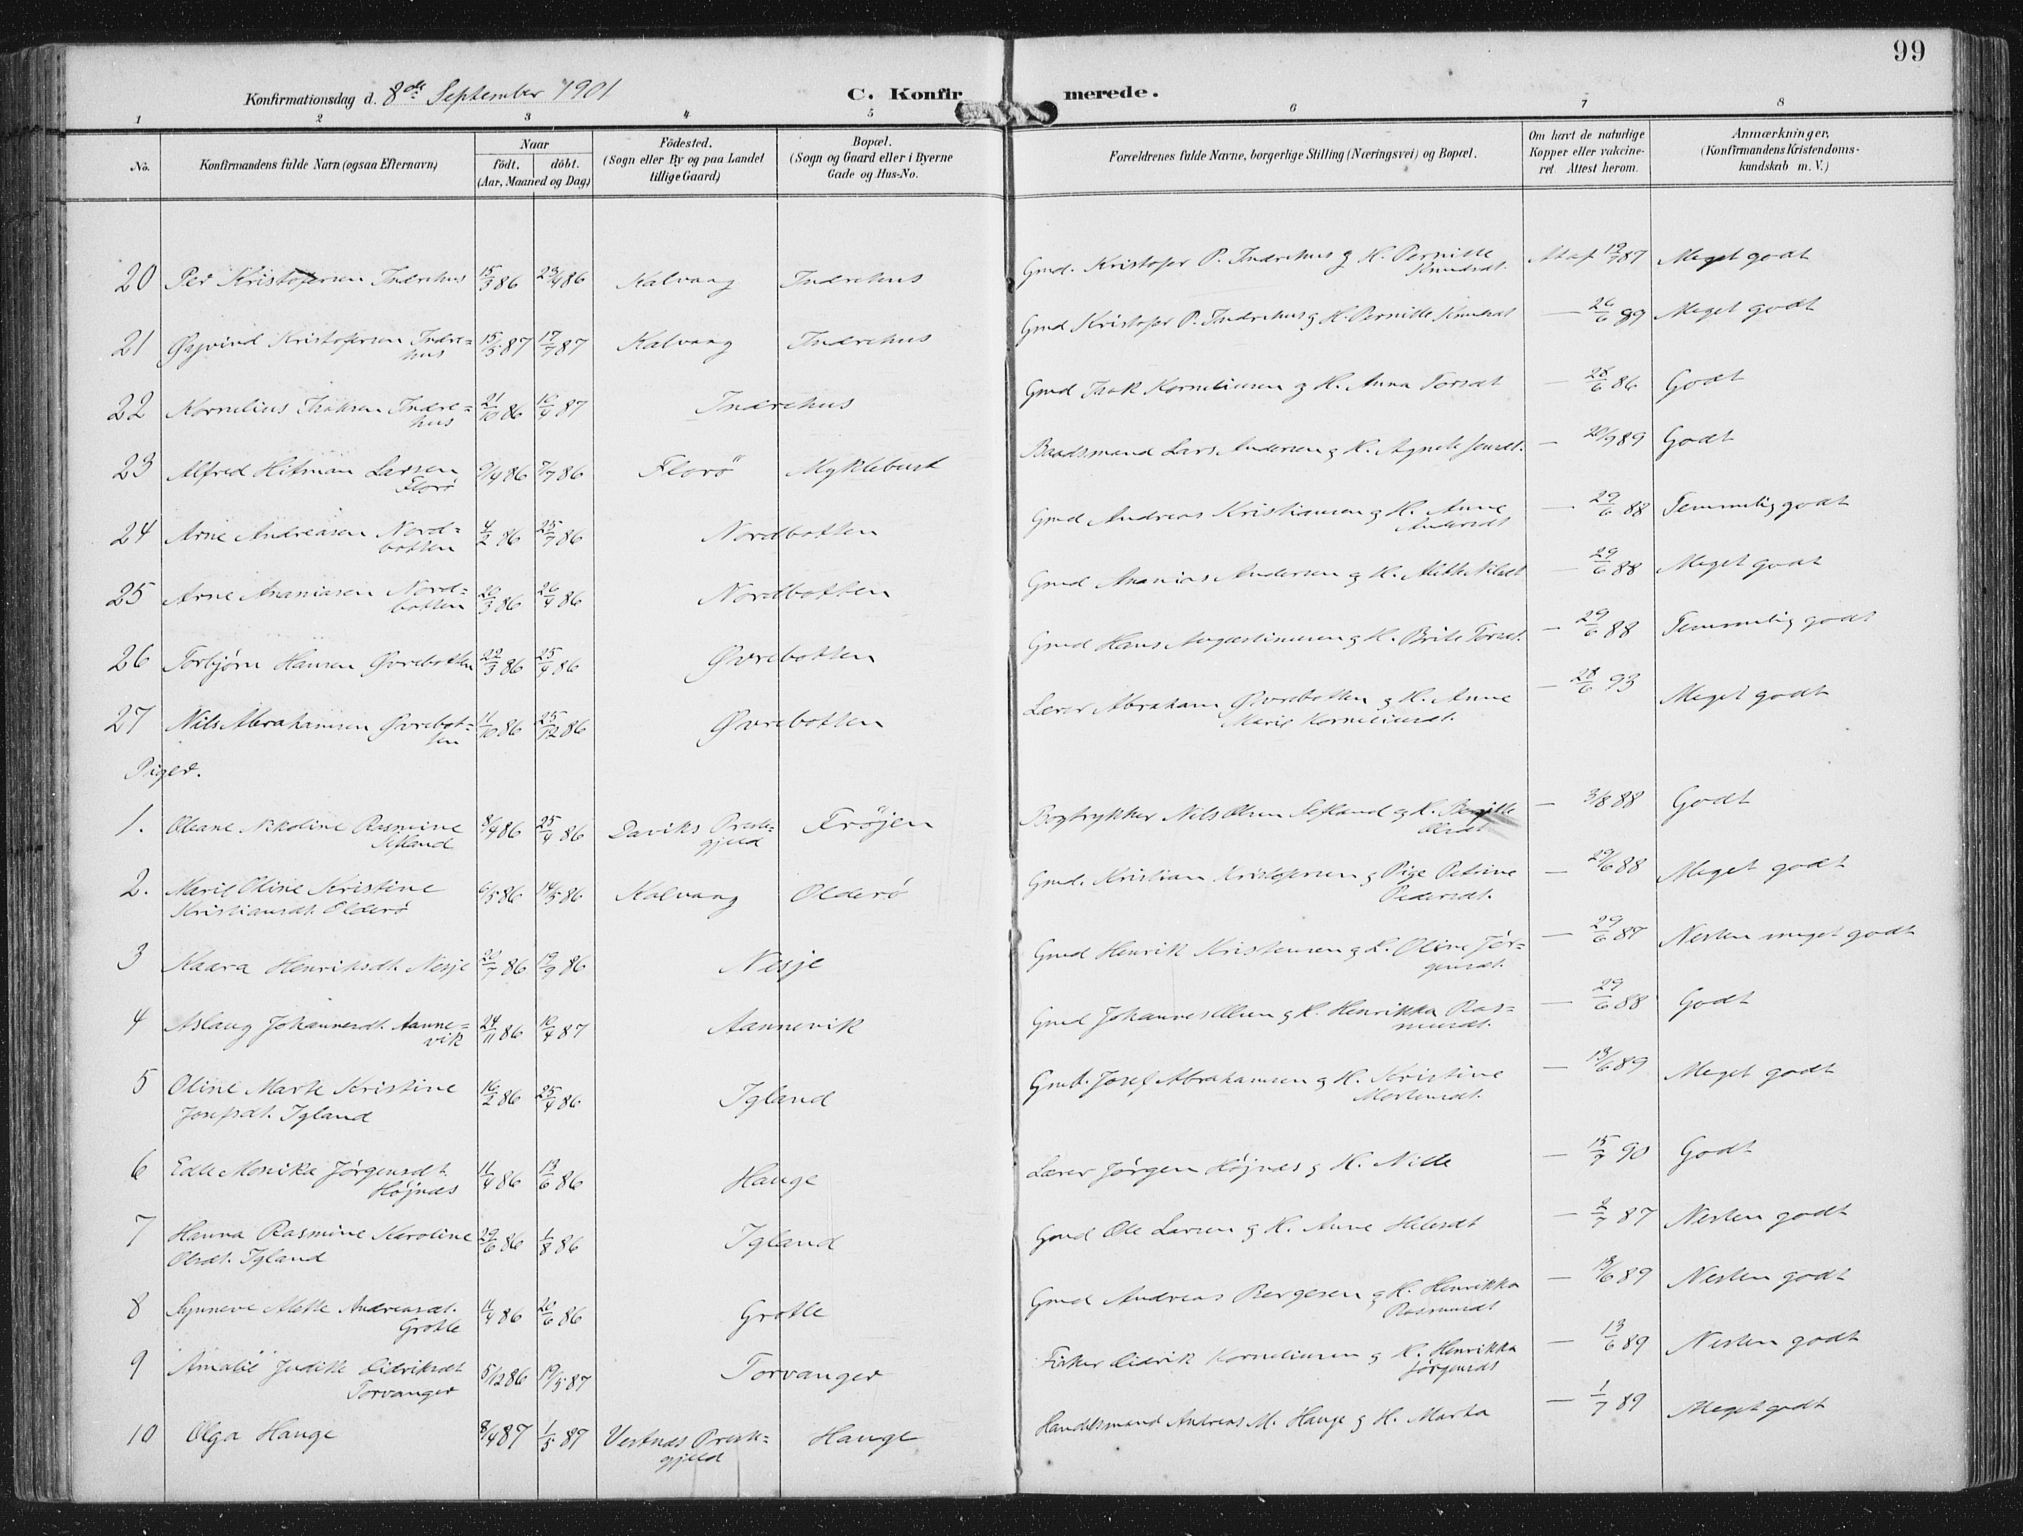 99
Konfirmationsdag d. 8de September 1901 C. Konfirmerede.
1 2 3 4 5 6 7 8
No. Konfirmandens fulde Navn (ogsaa Efternavn) Naar født. døbt. (Aar, Maaned og Dag) Fødested. (Sogn eller By og paa Landet tillige Gaard) Bopæl. (Sogn og Gaard eller i Byerne Gade og Hus-No. Forældrenes fulde Navne, borgerlige Stilling (Næringsvei) og Bopæl. Om havt de naturlige Kopper eller vakcineret Attest herom. Anmærkninger, (Konfirmandens Kristendomskundskab m. V.)
20 Per Kristofersen Indrehus 15/3 86 23/4 86 Kalvaag Indrehus Gmd. Kristofer P. Indrehus og H. Pernille Knudsdt. At af 19/7 87 Meget godt
21 Øyvind Kristofersen Indre= hus 15/5 87 17/7 87 Kalvaag Indrehus Gmd Kristofer P. Indrehus og H. Pernille Knudsdt — 26/6 89 Meget godt
22 Kornelius Isaksen Indre= hus 21/10 86 10/4 87 Indrehus Gmd Isak Korneliusen og H. Anna Torsdt — 28/6 86 Godt
23 Alfred Hitman Larsen Florø 9/4 86 7/7 86 Florö Myklebust Baadsmand Lars Andersen og H. Agnete Jensdt. — 20/9 89 Godt
24 Arne Andreasen Nord= botten 4/2 86 25/7 86 Nordbotten Gmd Andreas Kristiansen og H. Anne Andersdt — 29/6 88 Temmelig godt
25 Arne Ananiasen Nord= botten 20/3 86 26/4 86 Nordbotten Gmd Ananias Andersen og H. Alette Nilsdt — 29/6 88 Meget godt
26 Torbjørn Hansen Øvrebotten 22/3 86 25/4 86 Øvrebotten Gmd Hans Augustinusen og H. Brite Torsdt. — 29/6 88 Temmelig godt
27 Nils Abrahamsen Øvrebot= ten 11/10 86 25/12 86 Øvrebotten Lærer Abraham Øvrebotten og H. Anne Marie Korneliusdt. — 28/6 93 Meget godt
Piger.
1. Oleane Nikoline Rasmine Sefland 8/4 86 25/4 86 Daviks Preste= gjeld Frøjen Bogtrykker Nils Olsen Sefland og H. Olsdt — 3/8 88 Godt
2. Marie Oline Kristine Kristiansdt. Olderø 6/5 86 14/5 86 Kalvaag Olderö Gmd. Kristian Kristofersen og Pige Petrine Pedersdt. — 29/6 88 Meget godt
3 Kaara Henriksdt. Nesje 20/7 86 19/9 86 Nesje Gmd Henrik Kristensen og H. Oline Jør= gensdt. — 29/6 87 Nesten meget godt
4 Aslaug Johannesdt. Aanne= vik 24/11 86 10/4 87 Aannevik Gmd Johannes Olsen og H. Henrikka Ras= musdt. — 29/6 88 Godt
5 Oline Marte Kristine Josefsdt. Igland 16/2 86 25/4 86 Igland Gmd. Josef Abrahamsen og H. Kristine Mortensdt. — 13/6 89 Meget godt
6 Edle Monika Jørgensdt Højnes 11/4 86 13/6 86 Hauge Lærer Jørgen Højnes og H. Nille — 15/7 90 Godt
7 Hanna Rasmine Karoline Olsdt. Igland 29/6 86 1/8 86 Igland Gmd Ole Larsen og H. Anne Helesdt — 2/7 87 Nesten godt
8 Synneve Alette Andreasdt. Grotle 11/4 86 20/6 86 Grotle Gmd Andreas Børgesen og H. Henrikka Rasmusdt — 13/6 89 Nesten godt
9 Amalie Judith Didriksdt Torvanger 5/12 86 19/5 87 Torvanger Fisker Didrik Korneliusen og H. Henrikka Jørgensdt — 13/6 89 Nesten godt
10 Olga Hauge 8/4 87 1/5 87 Vestnes Preste= gjeld Hauge Handelsmand Andreas M. Hauge og H. Marta — 1/7 89 Meget godt